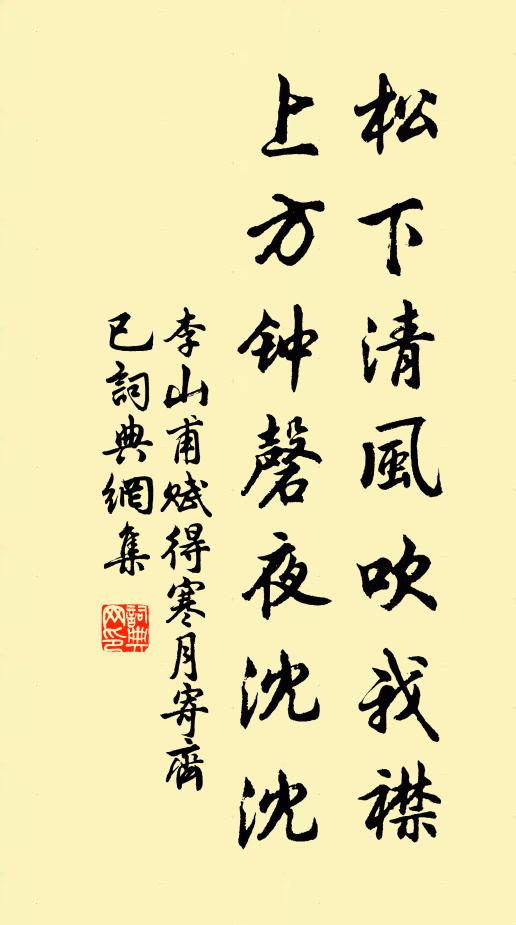 松下清風吹我襟
上方钟磬夜沈沈
李山甫賦得寒月寄齊
已詞典網集
詞典
网印